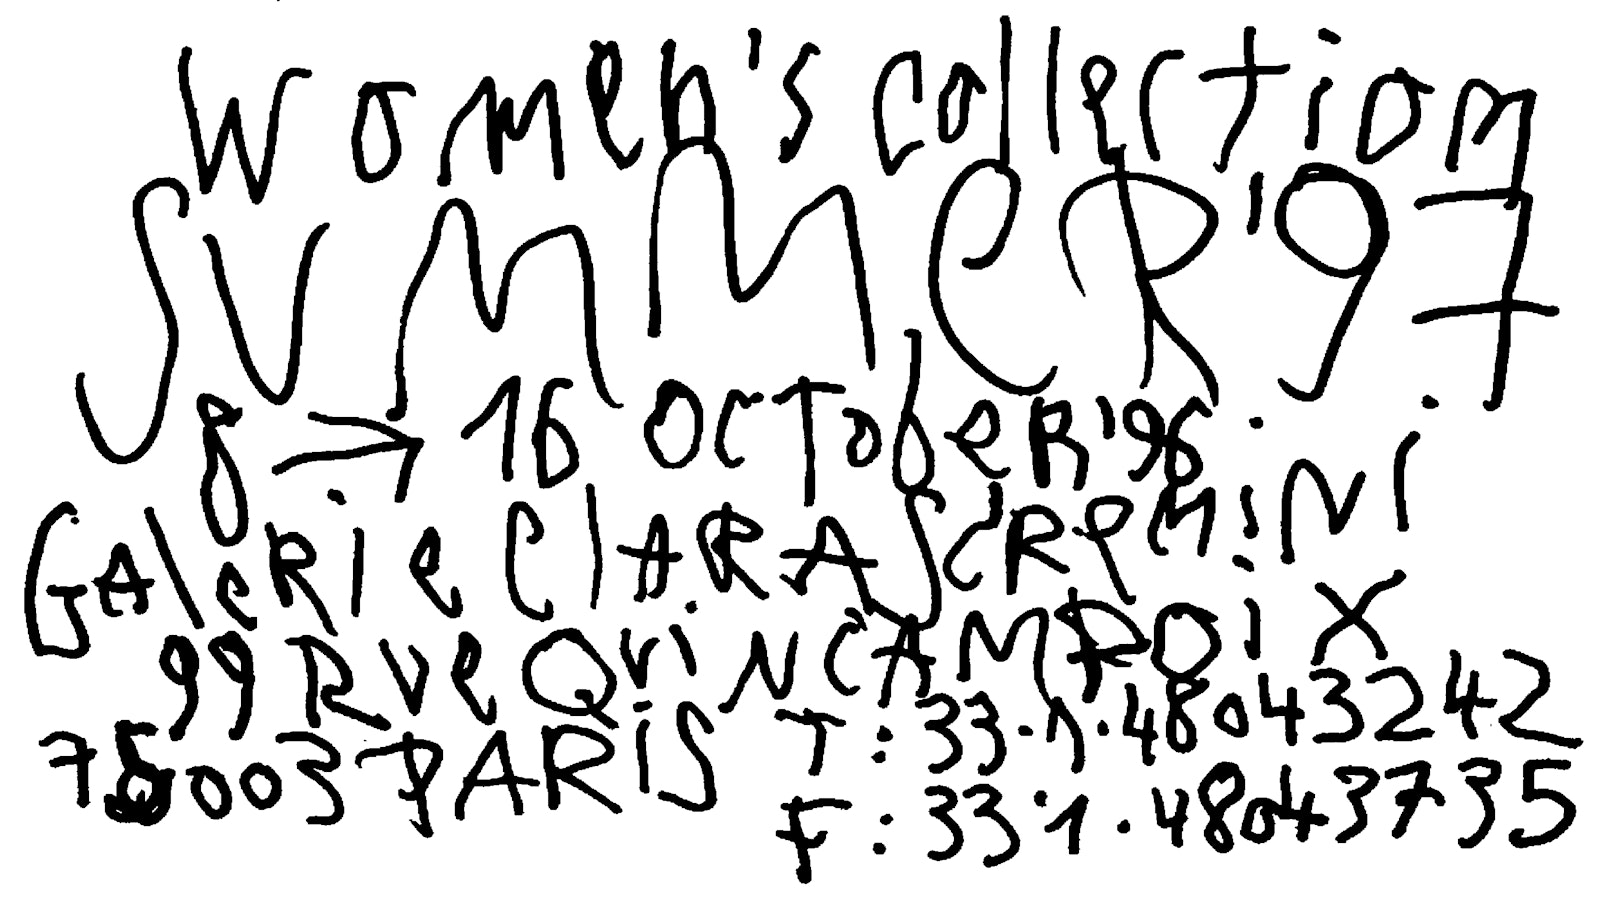 Women's collection
SUMMER '97
8 → 16 OCTobeR '96
GAleRie ClARA SCREMiNi
99 Rue QuiNCAMPOiX
75003 PARiS T : 33.1.48043242
F : 33.1.48043735